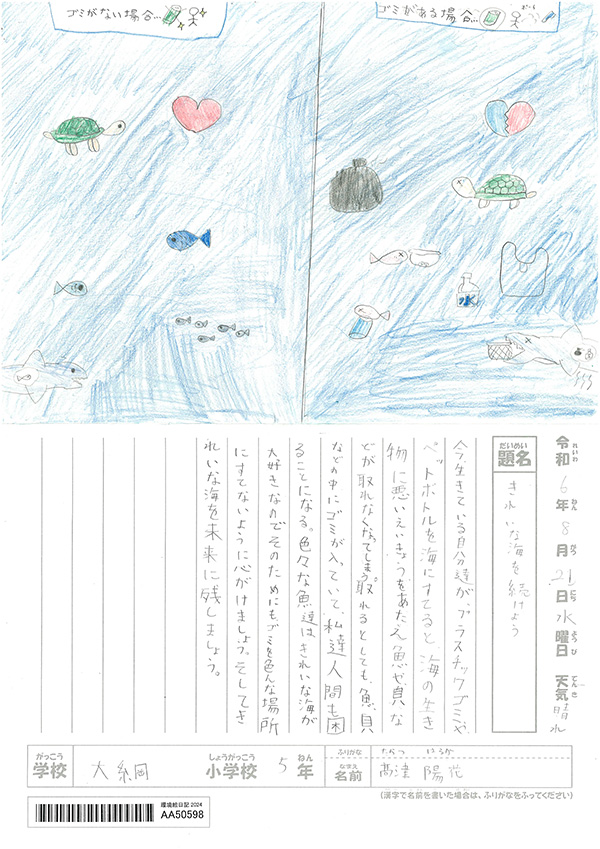 ゴミがない場合…
ゴミがある場合…
水
令和6年8月21日水曜日 天気 晴れ
れいわ ねん がつ にち ようび てんき
だいめい
題名
きれいな海を続けよう
今、生きている自分達が、プラスチックゴミや
ペットボトルを海にすてると、海の生き
物に悪いえいきょうをあたえ、魚や貝な
どが取れなくなってしまう。取れるとしても、魚、貝
などの中にゴミが入っていて、私達人間も困
ることになる。色々な魚達はきれいな海が
大好きなのでそのためにも、ゴミを色んな場所
にすてないように心がけましょう。そしてき
れいな海を未来に残しましょう。
がっこう しょうがっこう ねん ふりがな
学校 大綱 小学校 5年
なまえ
名前 髙津 陽花
(漢字で名前を書いた場合は、ふりがなをふってください)
環境絵日記 2024
AA50598